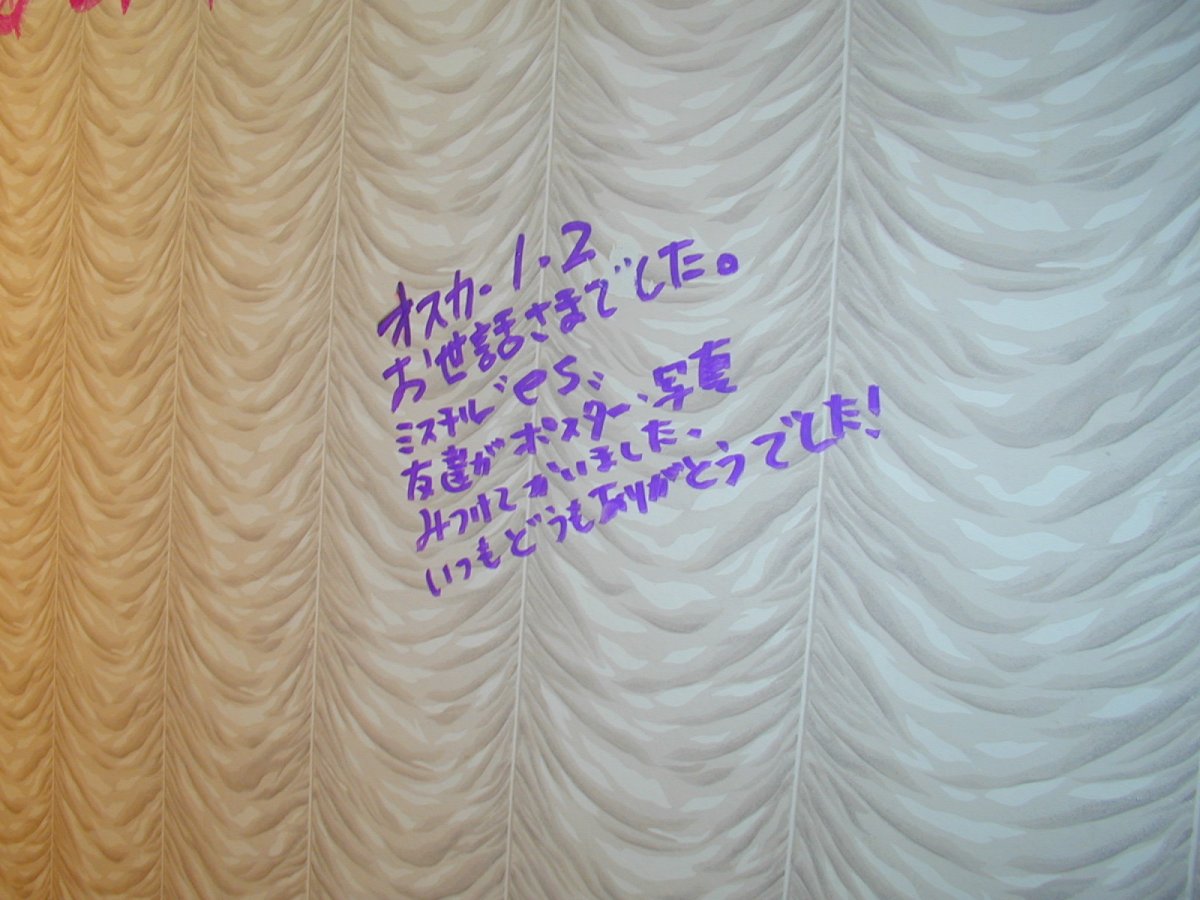 オスカー1・2
お世話さまでした。
ミスチル"es"
友達がポスター、写真
みつけてかいました、
いつもどうもありがとうでした!